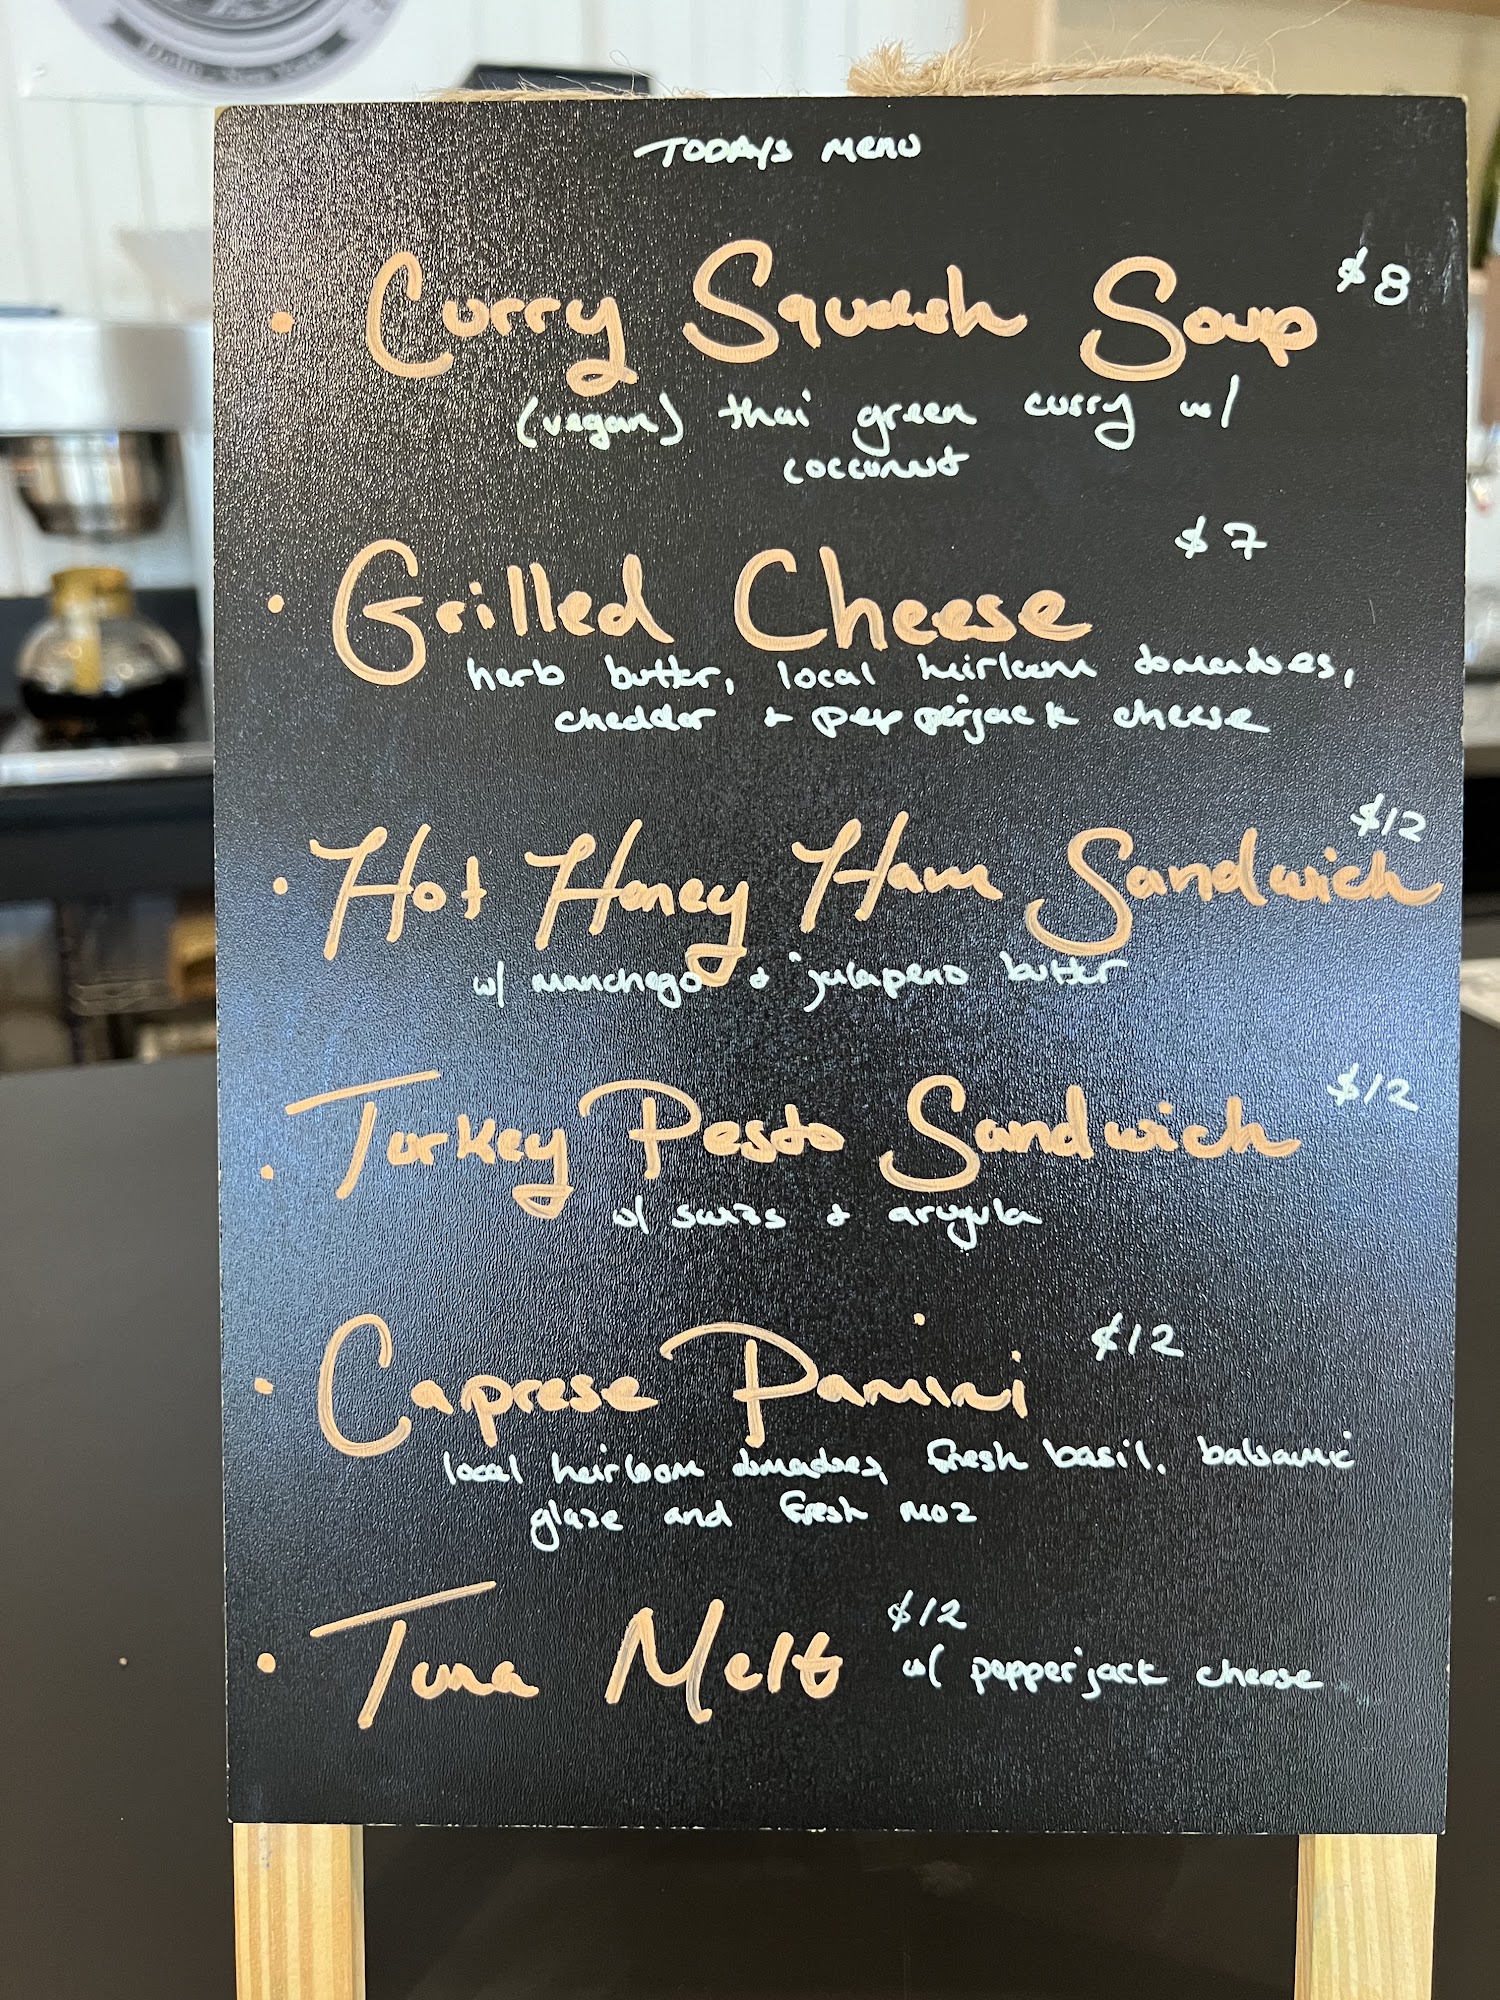 TODAYS MENU
• Curry Squash Soup $8
(vegan) thai green curry w/
cocconut
$7
• Grilled Cheese
herb butter, local heirloom tomatoes,
cheddar + pepperjack cheese
$12
• Hot Honey Ham Sandwich
w/ manchego + jalapeno butter
• Turkey Pesto Sandwich $12
w/ swiss + arugula
• Caprese Panini $12
local heirloom tomatoes, fresh basil, balsamic
glaze and fresh moz
• Tuna Melt $12
w/ pepperjack cheese